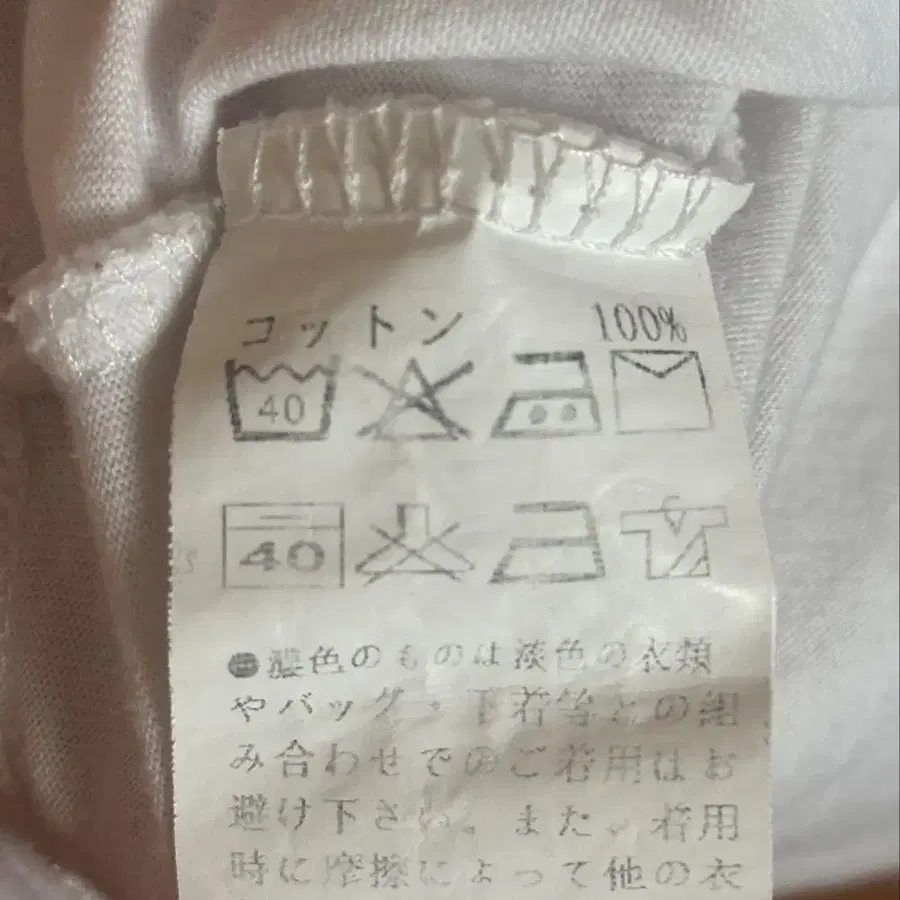 コットン 100%
40
40
●濃色のものは淡色の衣類
やバッグ・下着等との組
み合わせでのご着用はお
避け下さい。また、着用
時に摩擦によって他の衣